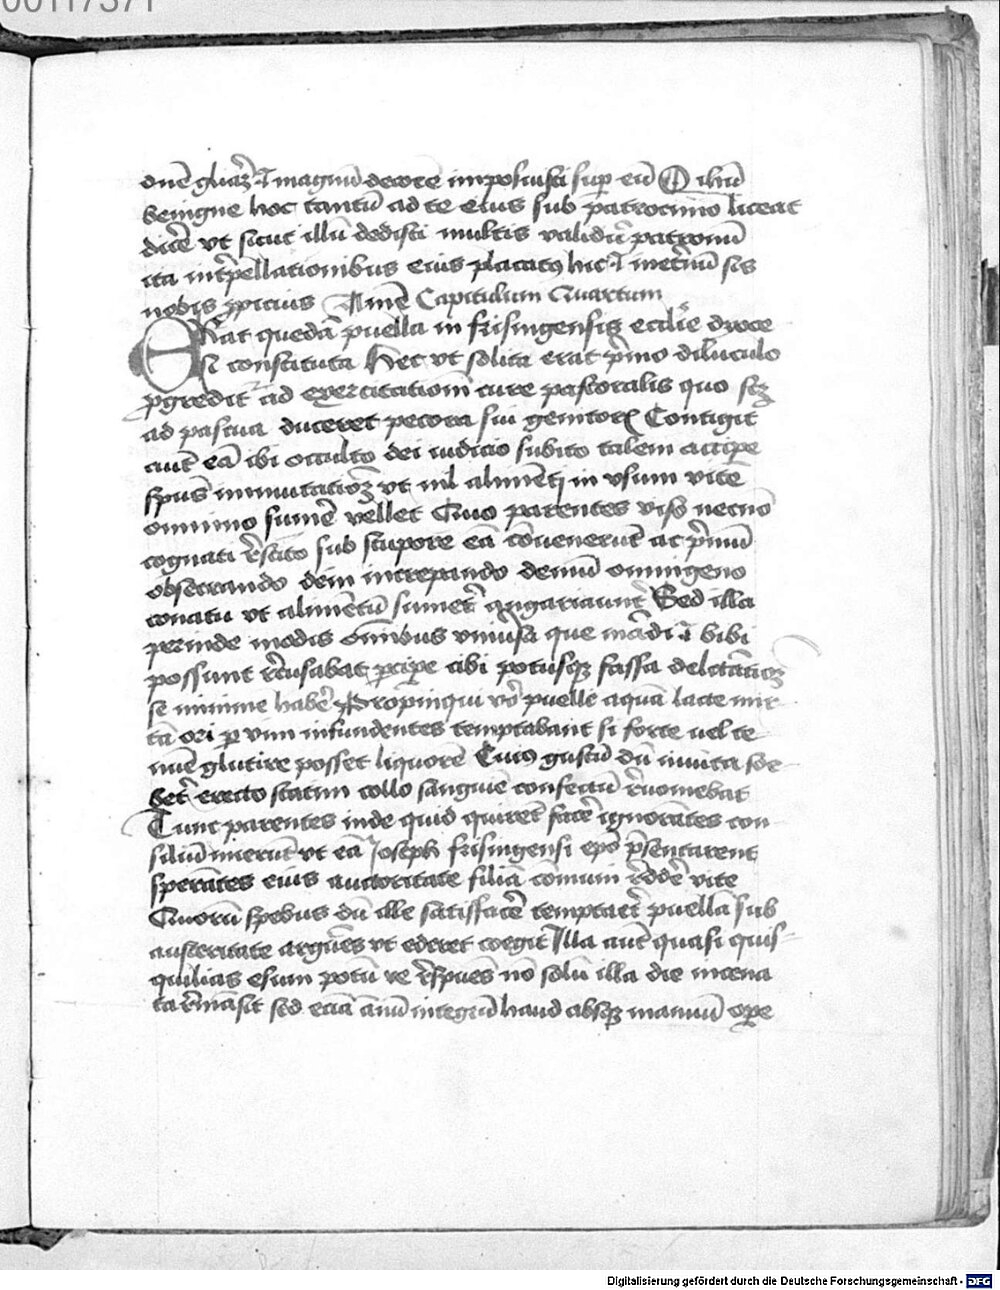 00117371
dnē gloriaʒ ⁊ magnū decorē imposuisti sup̱ eū O ihū
benigne hoc tantū ad te eius sub patrocinio liceat
dicē vt sicut illū dedisti multis validū patronū
ita int̄pellationibus eius placatꝰ hic ⁊ inet̄nū sis
nobis ꝓpicius Amē Capitulum Quartum
ERat quedā puella in frisingensis ecclīe dioce
si constituta Hec vt solita erat p̄mo diluculo
ꝓgredit̄ ad exercitationē cure pastoralis quo scʒ
ad pascua duceret pecora sui genitorꝭ Contigit
aut̄ eā ibi occulto dei iudicio subito talem accipe
spūs inmutationeʒ vt nil alimēti in vsum vite
omnino sumē vellet Quo parentes viso necnō
cognati r̄scito sub stupore eā cōvenerūt ac p̄mū
obsecrando dein increpando demū omnigeno
conatu vt alimētū sumet̄ angariauer̄t Sed illa
perinde modis om̄ibus vniūsa que mādi ⁊ bibi
possunt r̄cusabat p̱cipe cibi potusqʒ fassa delctātioeʒ
se minime habē Propinqui v̄o puelle aquā lacte mix
tā ori p̱ vim infundentes temptabant si forte uel te
nuē glutire posset liquorē Cuiꝰ gustū dū inuita sor
bet̄ erecto statim collo sanguine confectū r̄uomebat
Tunc parentes inde quid quirēt facē ignorātes con
siliū inierūt vt eā Joseph frisingensi ep̄o p̄sentarent
sperātes eius auctoritate filiā comuni r̄dde vite
Quorū spebus dū ille satisfacē temptaret puellā sub
austeritate arguēs vt ederet coegit Illa aut̄ quasi quis
quilias esum potū ve r̄spuēs nō solū illa die incena
ta r̄māsit sed eciā annū integrū haud absqʒ manuū ope
Digitalisierung gefördert durch die Deutsche Forschungsgemeinschaft - DFG